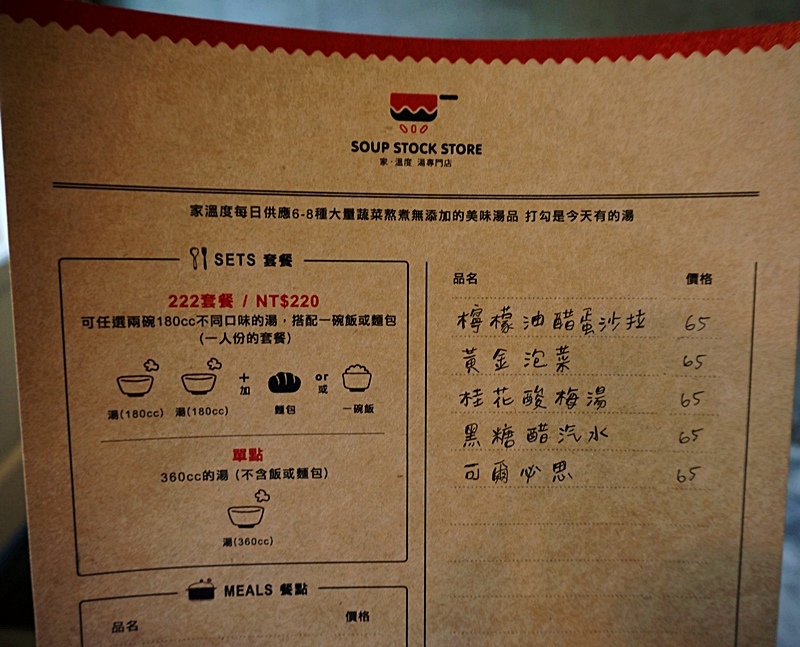 SOUP STOCK STORE
家·溫度 湯專門店
家溫度每日供應6-8種大量蔬菜熬煮無添加的美味湯品 打勾是今天有的湯
SETS 套餐
222套餐 / NT$220
可任選兩碗180cc不同口味的湯，搭配一碗飯或麵包
(一人份的套餐)
湯(180cc) 湯(180cc) + 加 麵包 or 或 一碗飯
單點
360cc的湯 (不含飯或麵包)
湯(360cc)
MEALS 餐點
品名 價格
品名 價格
檸檬油醋蛋沙拉 65
黃金泡菜 65
桂花酸梅湯 65
黑糖醋汽水 65
可爾必思 65